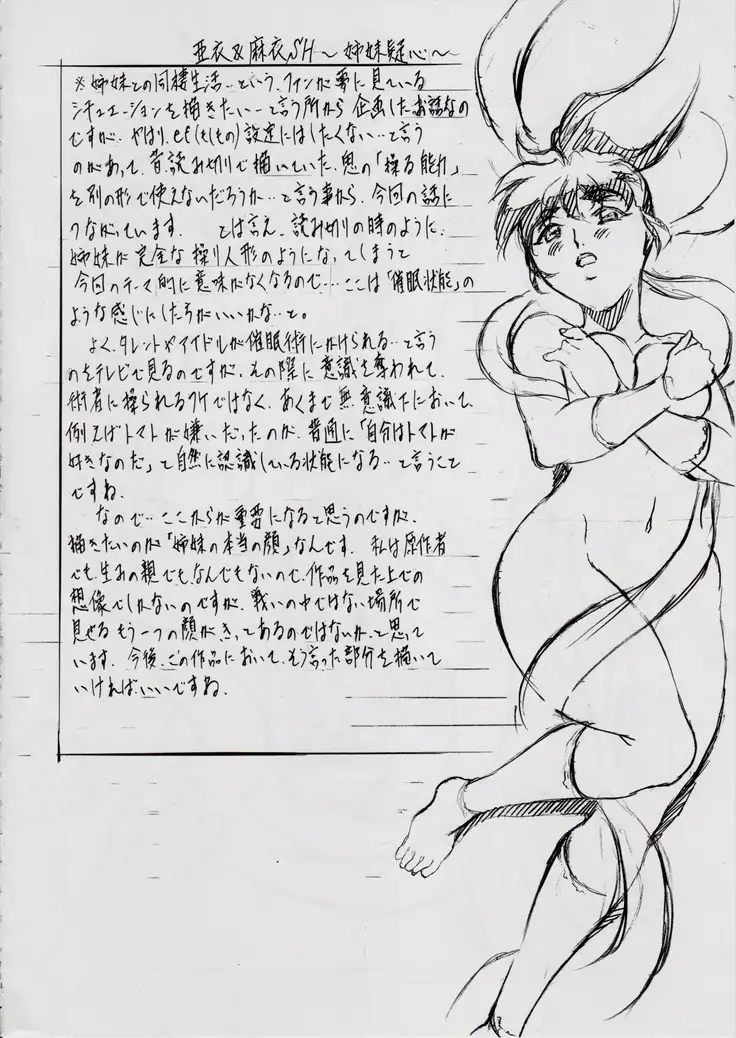 亜衣&麻衣SH～姉妹疑心～
※姉妹との同棲生活…という、ファンが夢に見ている
シチュエーションを描きたい…と言う所から企画したお話なの
ですが…やはり、if(もしもの)設定にはしたくない…と言う
のがあって、昔読み切りで描いていた、鬼の「操る能力」
を別の形で使えないだろうか…と言う事から、今回の話に
つながっています。 とは言え、読み切りの時のように、
姉妹が完全な操り人形のようになってしまうと
今回のテーマ的に意味がなくなるので…ここは「催眠状態」の
ような感じにした方がいいかな…と。
よく、タレントやアイドルが催眠術にかけられる…と言う
のをテレビで見るのですが、その際に意識を奪われて、
術者に操られるワケではなく、あくまで無意識下において、
例えばトマトが嫌いだったのが、普通に「自分はトマトが
好きなのだ」と自然に認識している状態になる…と言うこと
ですね。
なので…ここからが重要になると思うのですが、
描きたいのが「姉妹の本当の顔」なんです。私は原作者
でも、生みの親でもなんでもないので、作品を見た上での
想像でしかないのですが、戦いの中ではない場所で
見せるもう一つの顔がきっとあるのではないか、と思って
います。今後、この作品において、そう言った部分を描いて
いければいいですね。